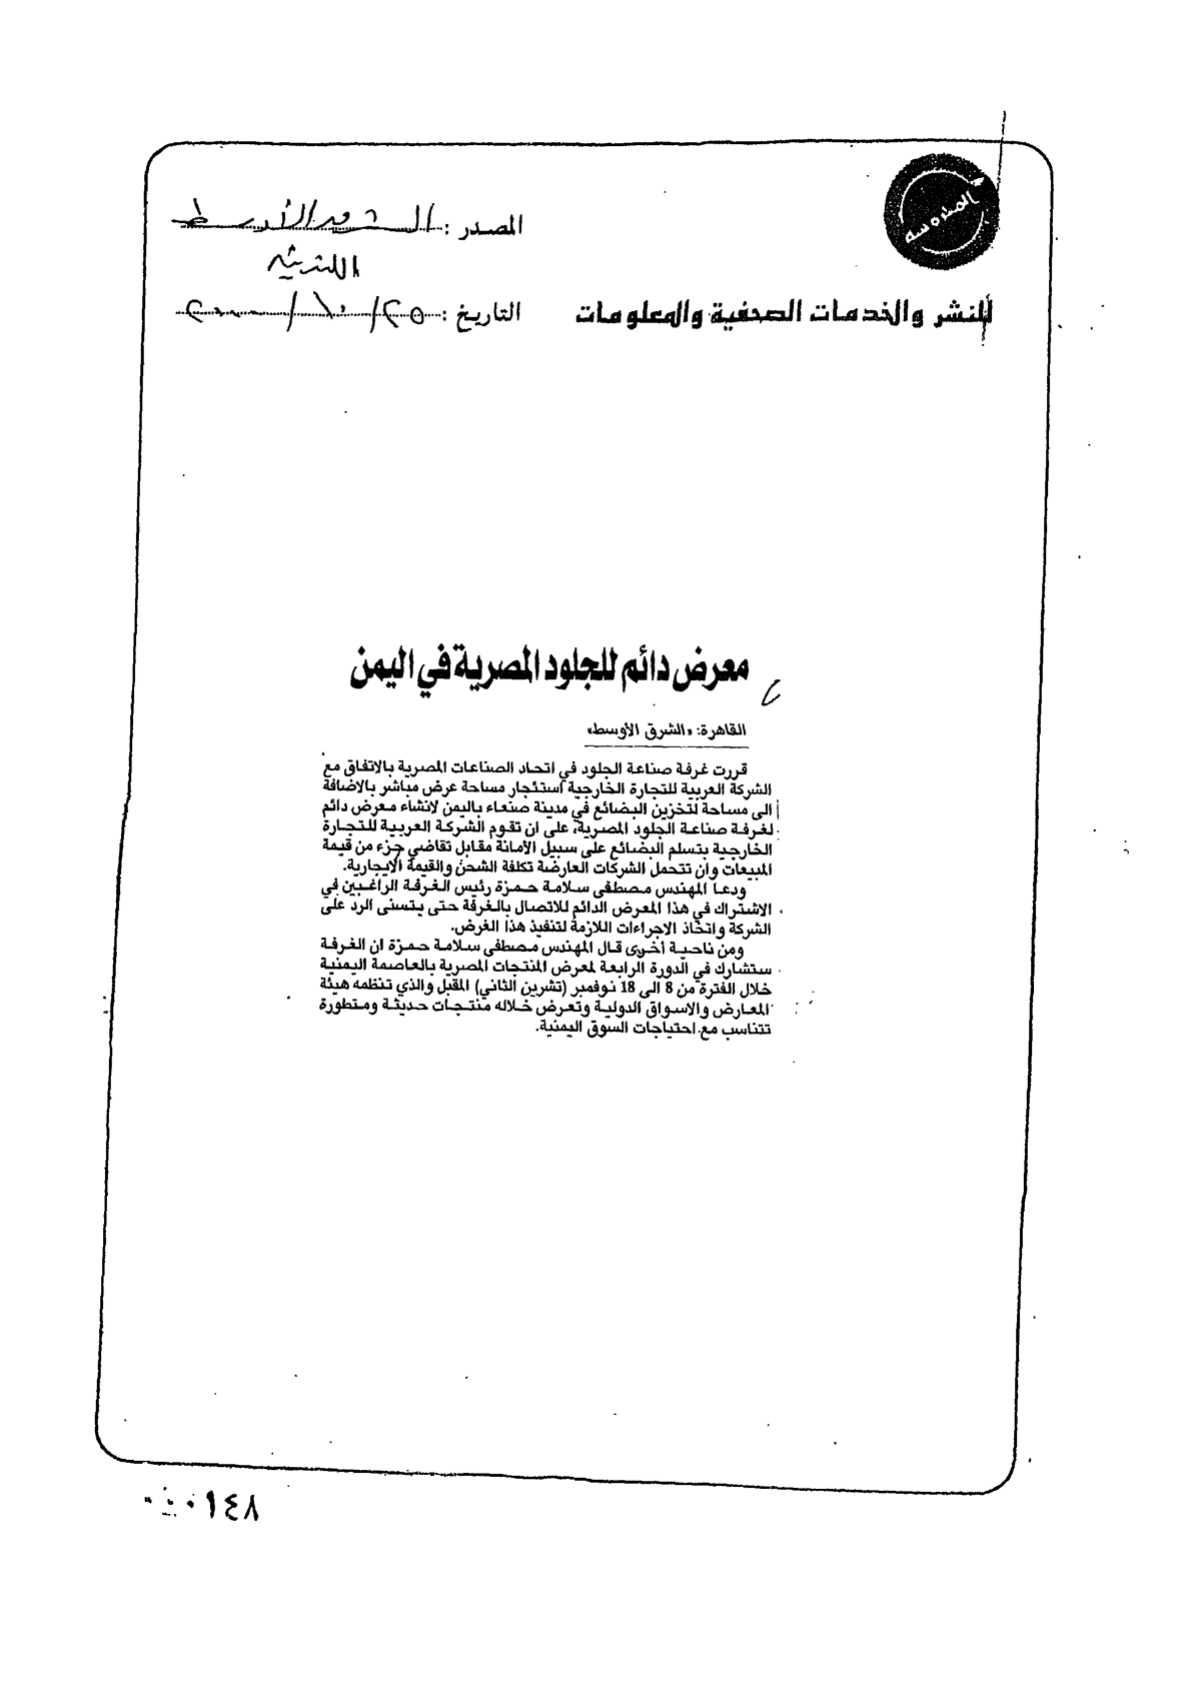 المحروسة
المصدر: الشرق الأوسط
اللندنية
للنشر والخدمات الصحفية والمعلومات
التاريخ: ٢٥/١٠/٢٠٠٠
معرض دائم للجلود المصرية في اليمن
القاهرة: «الشرق الأوسط»
قررت غرفة صناعة الجلود في اتحاد الصناعات المصرية بالاتفاق مع
الشركة العربية للتجارة الخارجية استئجار مساحة عرض مباشر بالاضافة
الى مساحة لتخزين البضائع في مدينة صنعاء باليمن لانشاء معرض دائم
لغرفة صناعة الجلود المصرية، على ان تقوم الشركة العربية للتجارة
الخارجية بتسلم البضائع على سبيل الأمانة مقابل تقاضي جزء من قيمة
المبيعات وان تتحمل الشركات العارضة تكلفة الشحن والقيمة الايجارية.
ودعا المهندس مصطفى سلامة حمزة رئيس الغرفة الراغبين في
الاشتراك في هذا المعرض الدائم للاتصال بالغرفة حتى يتسنى الرد على
الشركة واتخاذ الاجراءات اللازمة لتنفيذ هذا الغرض.
ومن ناحية أخرى قال المهندس مصطفى سلامة حمزة ان الغرفة
ستشارك في الدورة الرابعة لمعرض المنتجات المصرية بالعاصمة اليمنية
خلال الفترة من 8 الى 18 نوفمبر (تشرين الثاني) المقبل والذي تنظمه هيئة
المعارض والاسواق الدولية وتعرض خلاله منتجات حديثة ومتطورة
تتناسب مع احتياجات السوق اليمنية.
١٤٨